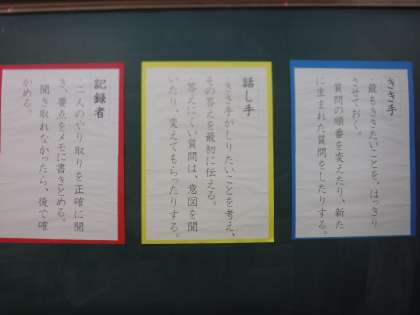 きき手
・最もききたいことを、はっきり
させておく。
・質問の順番を変えたり、新た
に生まれた質問をしたりする。
話し手
・きき手がしりたいことを考え、
その答えを最初に伝える。
・答えにくい質問は、意図を聞
いたり、変えてもらったりする。
記録者
・二人のやり取りを正確に聞
き、要点をメモに書きとめる。
・聞き取れなかったら、後で確
かめる。